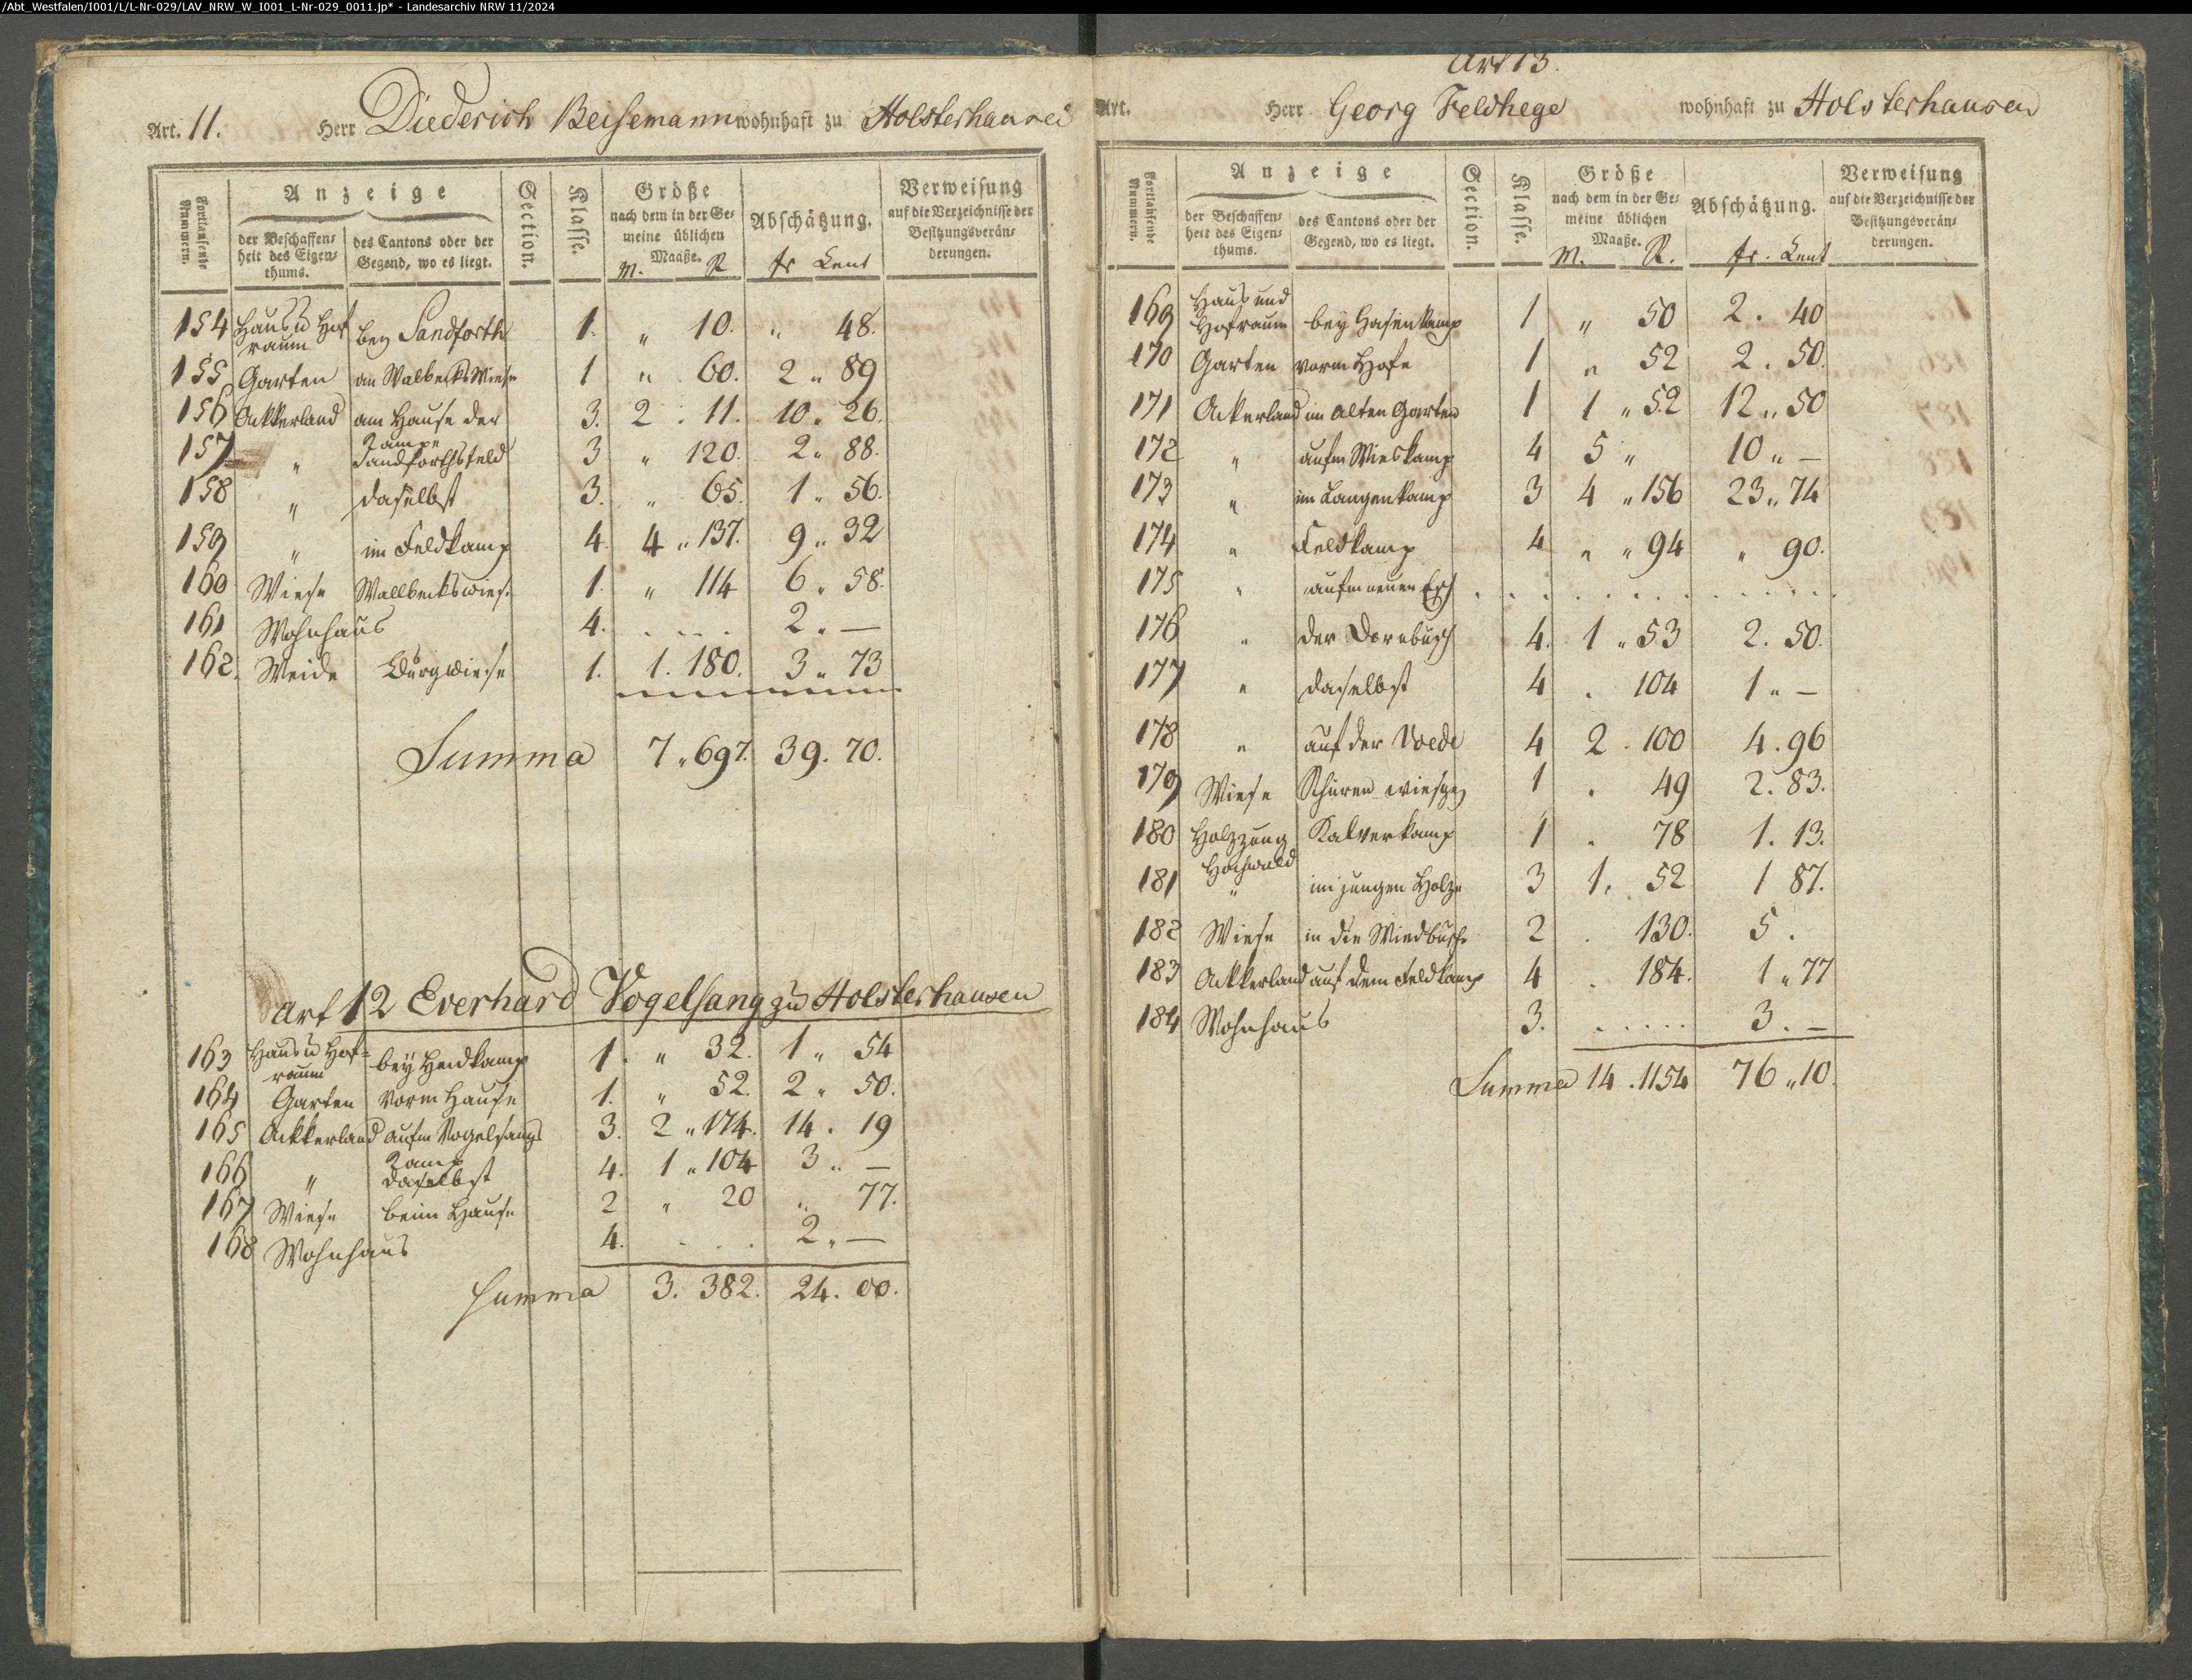 /Abt_Westfalen/I001/L/L-Nr-029/LAV_NRW_W_I001_L-Nr-029_0011.jp* - Landesarchiv NRW 11/2024
Art. 11. Herr Diederich Beisemann wohnhaft zu Holsterhausen
Fortlaufende Nummern.
Anzeige
der Beschaffen-
heit des Eigen-
thums.
des Cantons oder der
Gegend, wo es liegt.
Section.
Klasse.
Größe
nach dem in der Ge-
meine üblichen
Maaße.
M. R
Abschätzung.
fr Cent
Verweisung
auf die Verzeichnisse der
Besitzungsverän-
derungen.
154 Haus u Hof raum bey Sandforth 1. " 10. " 48.
155 Garten an Walbecks Wiese 1 " 60. 2 " 89
156 Ackkerland am Hause der Kampe 3. 2 . 11. 10 " 26.
157 " Sandforthsfeld 3 " 120. 2 " 88.
158 " daselbst 3. " 65. 1 " 56.
159 " im Feldkamp 4. 4 " 137. 9 " 32
160 Wiese Wallbeckswies. 1. " 114 6 " 58.
161 Wohnhaus 4. . . . . 2 " —
162. Weide Burgwiese 1. 1. 180. 3 " 73
Summa 7 " 697. 39. 70.
Art 12 Everhard Vogelsang zu Holsterhausen
163 Haus u Hof= raum bey Heidkamp 1. " 32. 1 " 54
164 Garten vorm Hause 1. " 52. 2 " 50.
165 Ackkerland aufm Vogelsangs Kamp 3. 2 " 174. 14 . 19
166 " daselbst 4. 1 " 104 3 " —
167 Wiese beim Hause 2 " 20 " 77.
168 Wohnhaus 4. . . . 2 " —
Summa 3. 382. 24. 00.
Art 13.
Art. Herr Georg Feldhege wohnhaft zu Holsterhausen
Fortlaufende Nummern.
Anzeige
der Beschaffen-
heit des Eigen-
thums.
des Cantons oder der
Gegend, wo es liegt.
Section.
Klasse.
Größe
nach dem in der Ge-
meine üblichen
Maaße.
M. R.
Abschätzung.
fr. Cent
Verweisung
auf die Verzeichnisse der
Besitzungsverän-
derungen.
169 Haus und Hofraum bey Hasenkamp 1 " 50 2 . 40
170 Garten vorm Hofe 1 " 52 2 . 50.
171 Ackerland im alten Garten 1 1 " 52 12 " 50
172 " aufm Wieskamp 4 5 " 10 " —
173 " im Langenkamp 3 4 " 156 23 " 74
174 " Feldkamp 4 " " 94 " 90.
175 " aufm neuen Esch . . . . . . . . . .
176 " der Dornbusch 4. 1 " 53 2. 50.
177 " daselbst 4 . 104 1 " —
178 " auf der Voede 4 2 . 100 4 . 96
179 Wiese 1 . 49 2. 83.
180 Holzung Hochwald Kalverkamp 1 . 78 1. 13.
181 " im jungen Holze 3 1. 52 1 87.
182 Wiese in die Wiedbusch 2 . 130. 5 .
183 Ackkerland auf dem Feldkamp 4 . 184. 1 " 77
184 Wohnhaus 3. . . . . . 3 . —
Summa 14 . 1154 76 " 10.